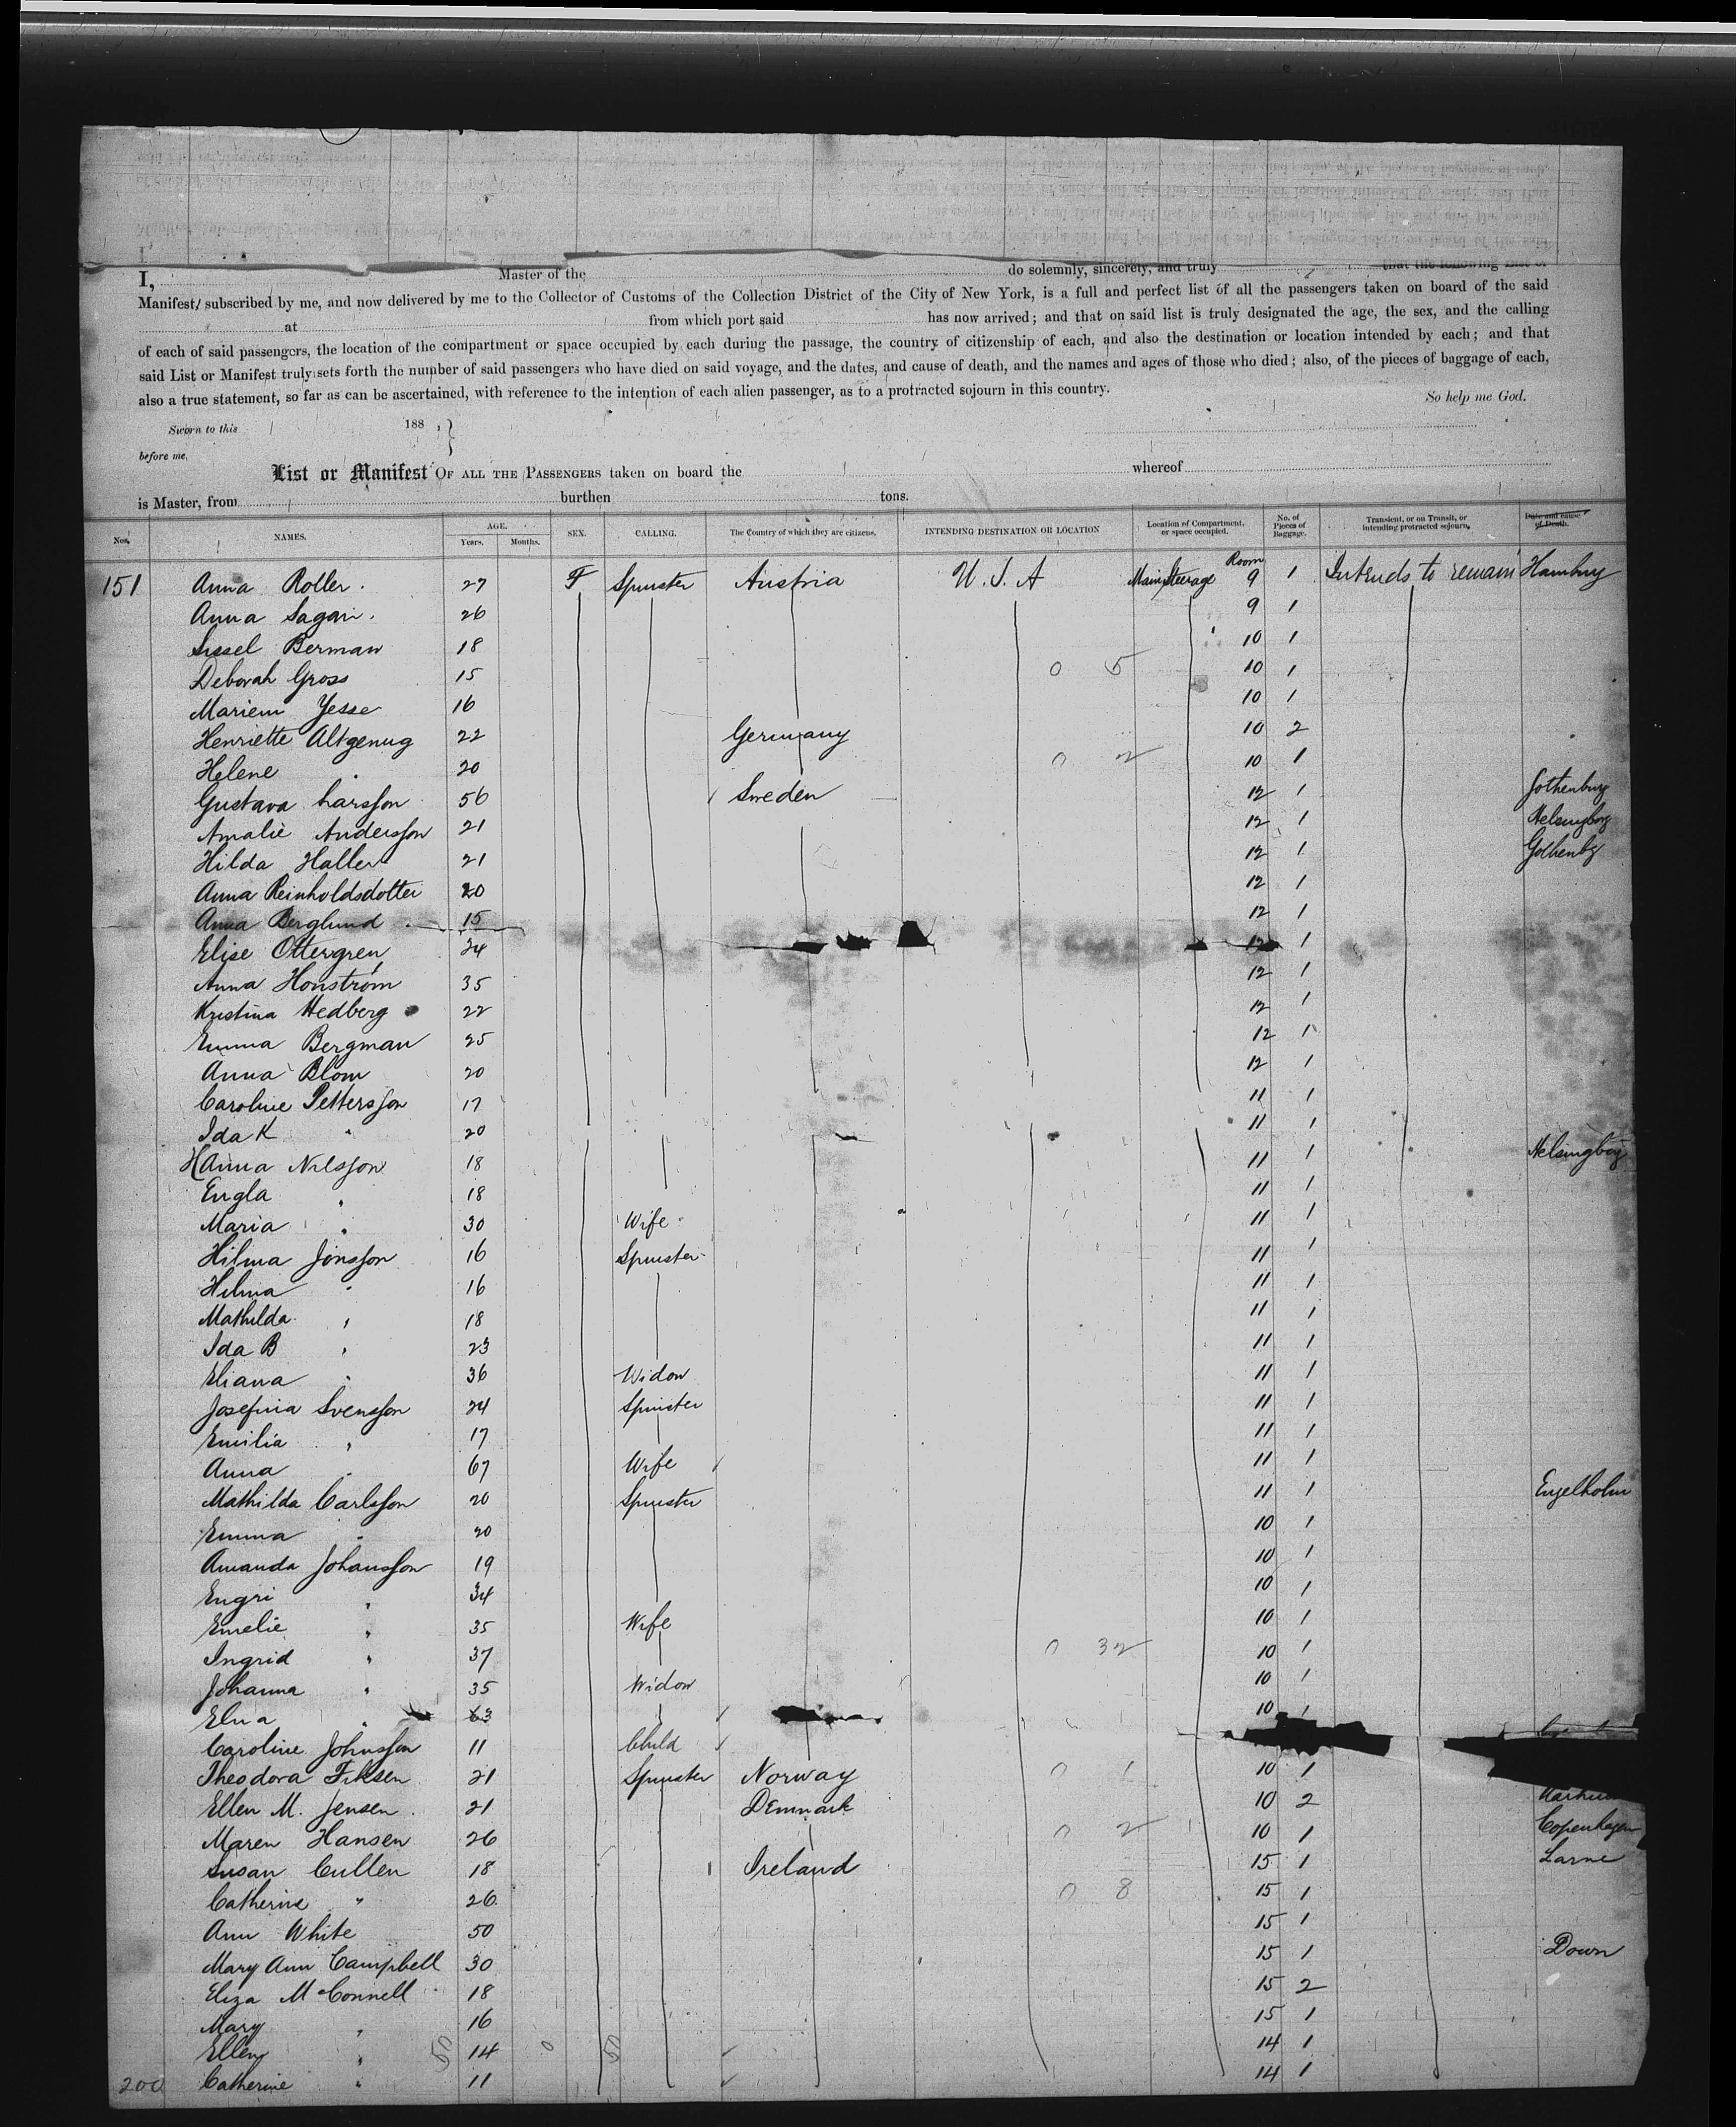 I, Master of the do solemnly, sincerely, and truly that the following List or
Manifest, subscribed by me, and now delivered by me to the Collector of Customs of the Collection District of the City of New York, is a full and perfect list of all the passengers taken on board of the said
at from which port said has now arrived; and that on said list is truly designated the age, the sex, and the calling
of each of said passengers, the location of the compartment or space occupied by each during the passage, the country of citizenship of each, and also the destination or location intended by each; and that
said List or Manifest truly sets forth the number of said passengers who have died on said voyage, and the dates, and cause of death, and the names and ages of those who died; also, of the pieces of baggage of each,
also a true statement, so far as can be ascertained, with reference to the intention of each alien passenger, as to a protracted sojourn in this country. So help me God.
Sworn to this 188 ,
before me,
List or Manifest OF ALL THE PASSENGERS taken on board the whereof
is Master, from burthen tons.
Nos. NAMES. AGE. Years. Months. SEX. CALLING. The Country of which they are citizens. INTENDING DESTINATION OR LOCATION Location of Compartment, or space occupied. No. of Pieces of Baggage. Transient, or on Transit, or intending protracted sojourn. Date and cause of Death.
Room
151 Anna Roller 27 F Spinster Austria U.S.A Main Steerage 9 1 Intends to remain Hamburg
Anna Sagan 26 9 1
Sissel Berman 18 10 1
Deborah Gross 15 0 5 10 1
Mariem Yesse 16 10 1
Henriette Altgenug 22 Germany 10 2
Helene " 20 0 2 10 1
Gustava Larsson 56 Sweden 12 1 Gothenburg
Amalie Andersson 21 12 1 Helsingborg
Hilda Haller 21 12 1 Gothenbg
Anna Reinholdsdotter 20 12 1
Anna Berglund 15 12 1
Elise Ottergren 24 12 1
Anna Honström 35 12 1
Kristina Hedberg 22 12 1
Emma Bergman 25 12 1
Anna Blom 20 12 1
Caroline Pettersson 17 11 1
Ida K " 20 11 1
Hanna Nilsson 18 11 1 Helsingborg
Engla " 18 11 1
Maria " 30 Wife 11 1
Hilma Jönsson 16 Spinster 11 1
Hilma " 16 11 1
Mathilda " 18 11 1
Ida B " 23 11 1
Eliana " 36 Widow 11 1
Josefina Svensson 24 Spinster 11 1
Emilia " 17 11 1
Anna " 67 Wife 11 1
Mathilda Carlsson 20 Spinster 11 1 Engelholm
Emma " 20 10 1
Amanda Johansson 19 10 1
Engri " 34 10 1
Emelie " 35 Wife 10 1
Ingrid " 37 0 32 10 1
Johanna " 35 Widow 10 1
Elna " 63 10 1
Caroline Johnsson 11 Child
Theodora Eriksen 21 Spinster Norway 0 1 10 1
Ellen M. Jensen 21 Denmark 10 2
Maren Hansen 26 0 2 10 1 Copenhagen
Susan Cullen 18 Ireland 15 1 Larne
Catherine " 26 0 8 15 1
Ann White 50 15 1
Mary Ann Campbell 30 15 1 Down
Eliza McConnell 18 15 2
Mary " 16 15 1
Ellen " 50 14 0 50 14 1
200 Catherine " 11 14 1